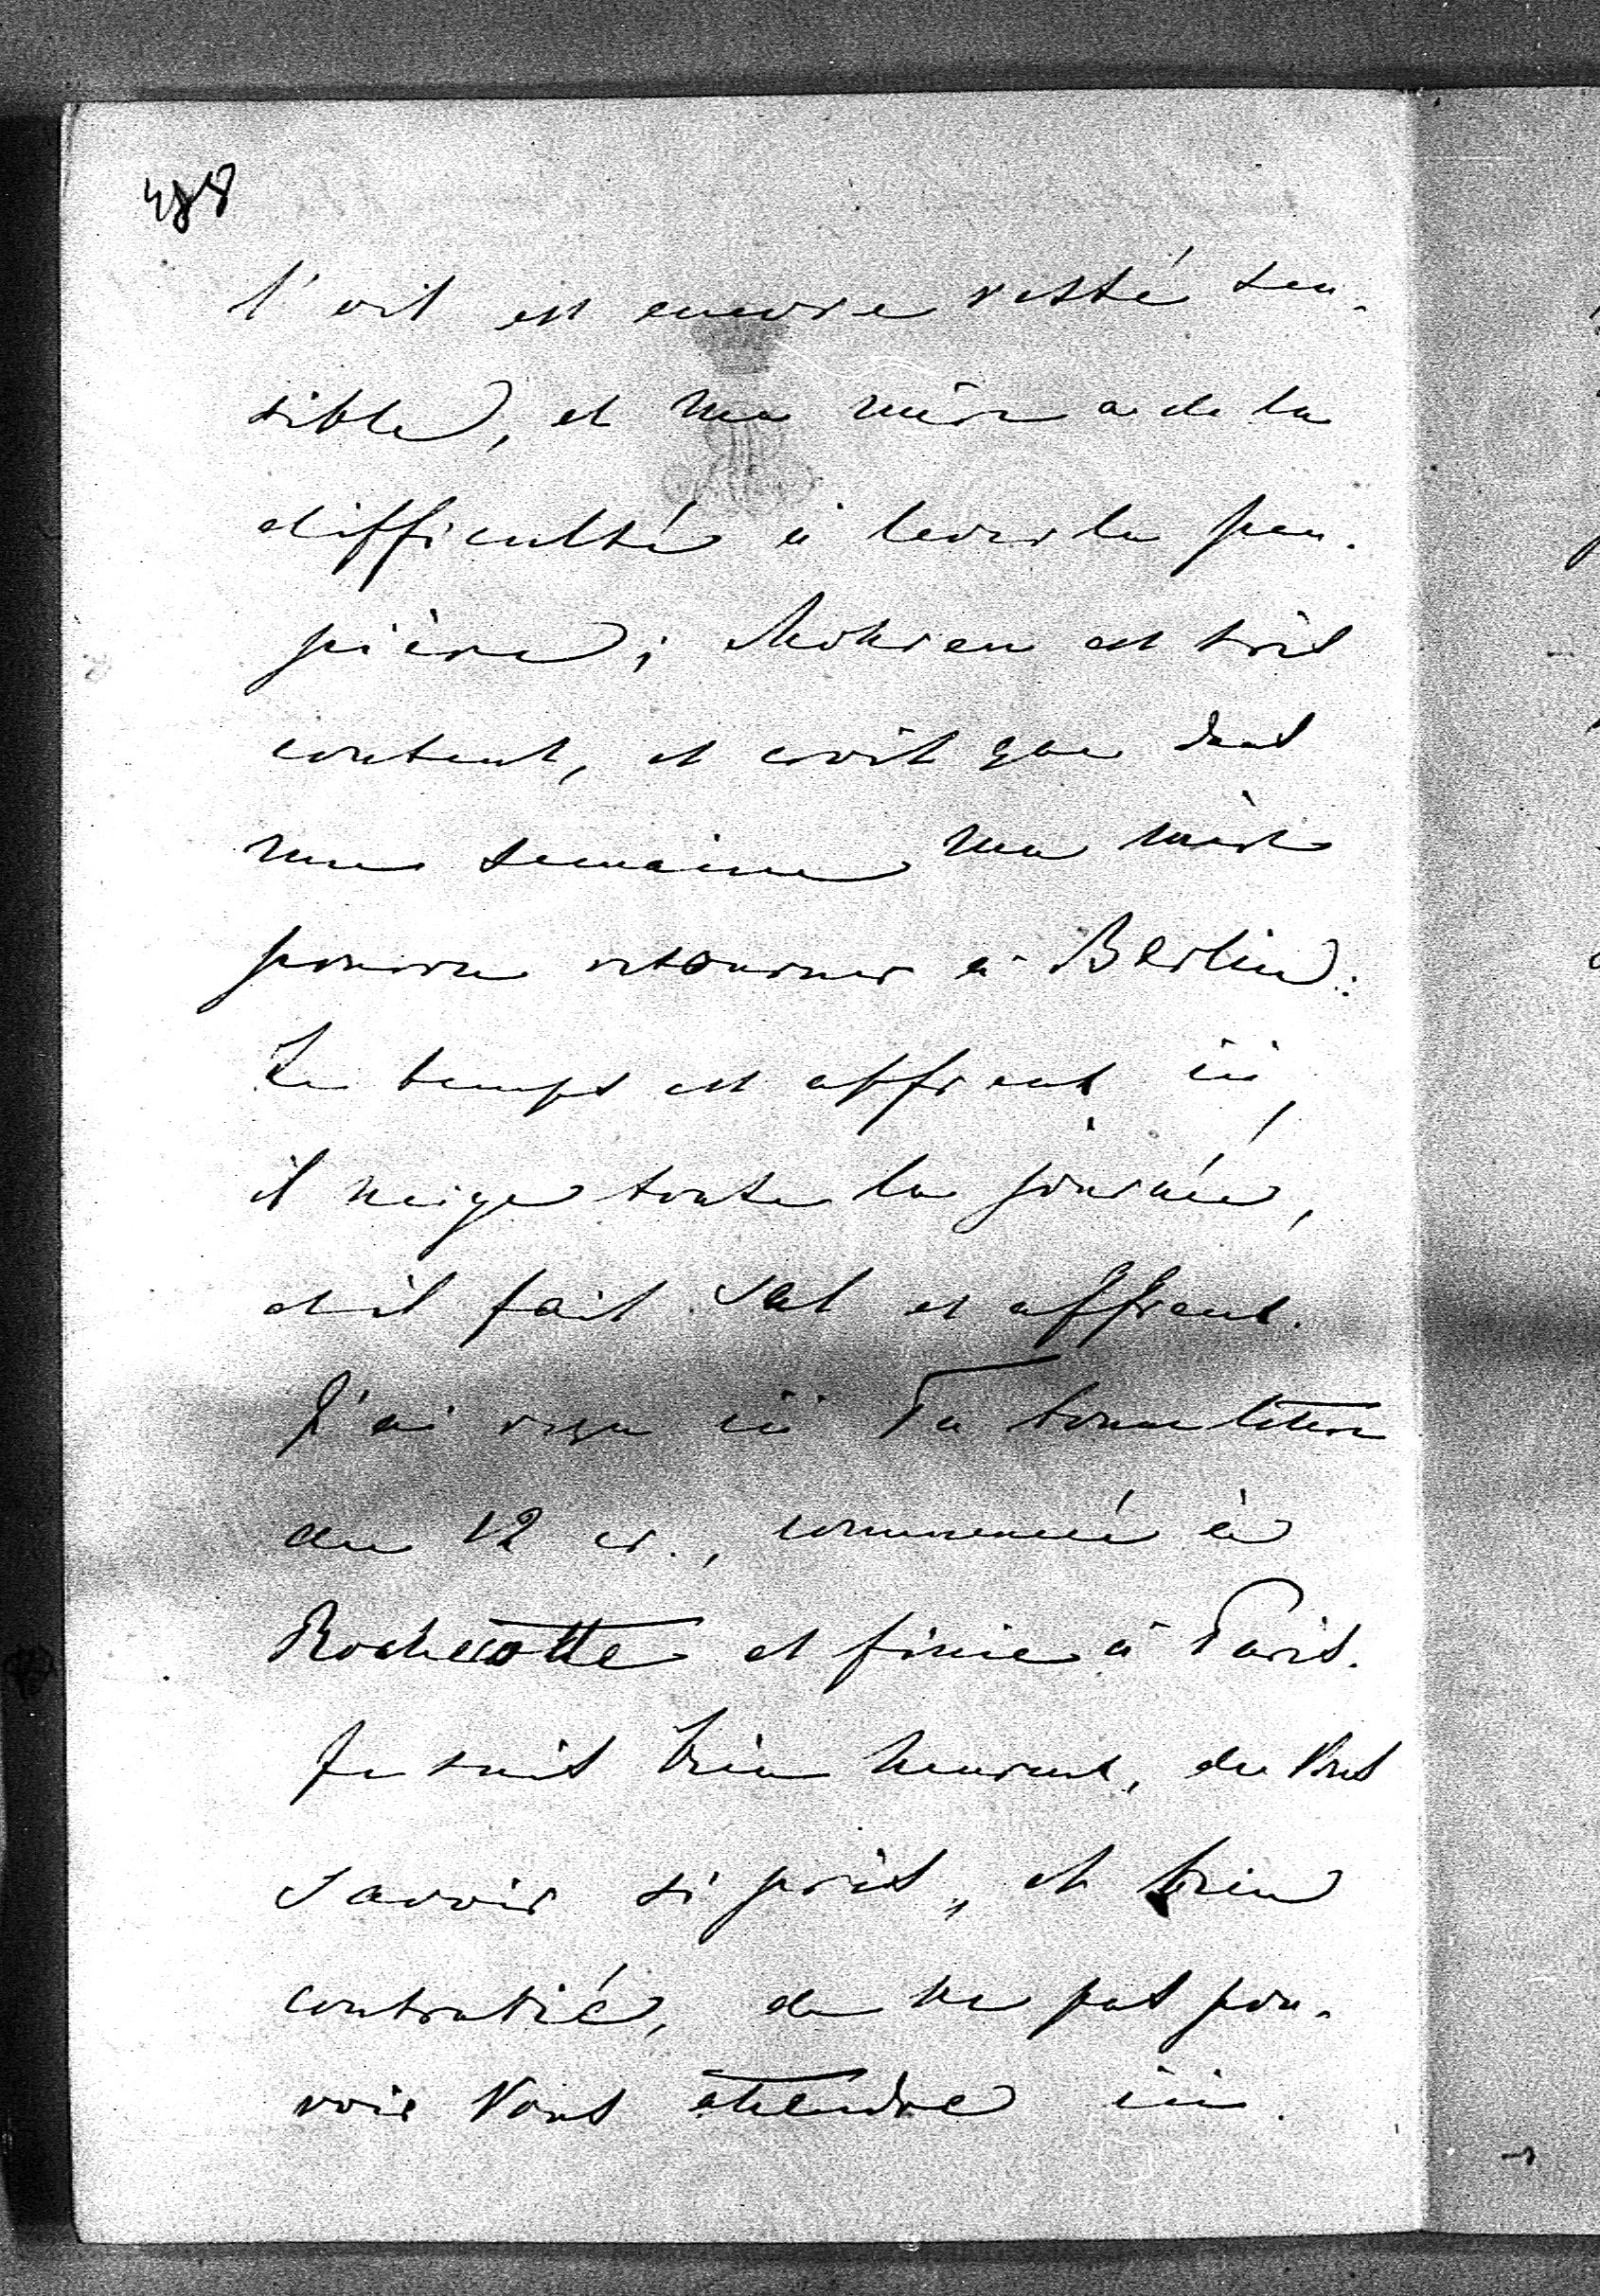 488
l'œil est encore resté sen-
sible, et ma mère a de la
difficulté à lever la pau-
pière; Mohren est très
content, et croit que dans
une semaine ma mère
pourra retourner à Berlin.
Le temps est affreux ici,
il neige toute la journée,
et il fait sal et affreux.
J'ai reçu ici Ta bonne lettre
du 12 cr., commencée à
Rochecotte et finie à Paris.
Je suis bien heureux, de Vous
savoir si près, et bien
contrarié, de ne pas pou-
voir Vous attendre ici.